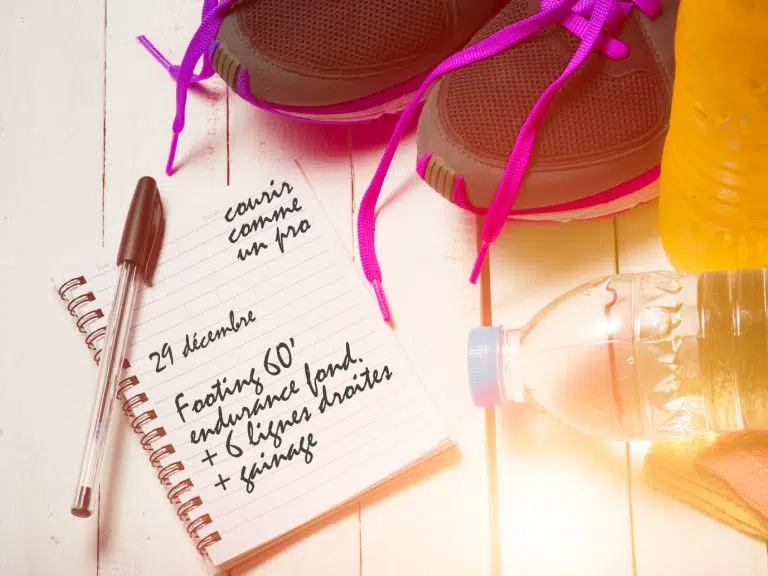 courir
comme
un pro
29 décembre
Footing 60'
endurance fond.
+ 6 lignes droites
+ gainage